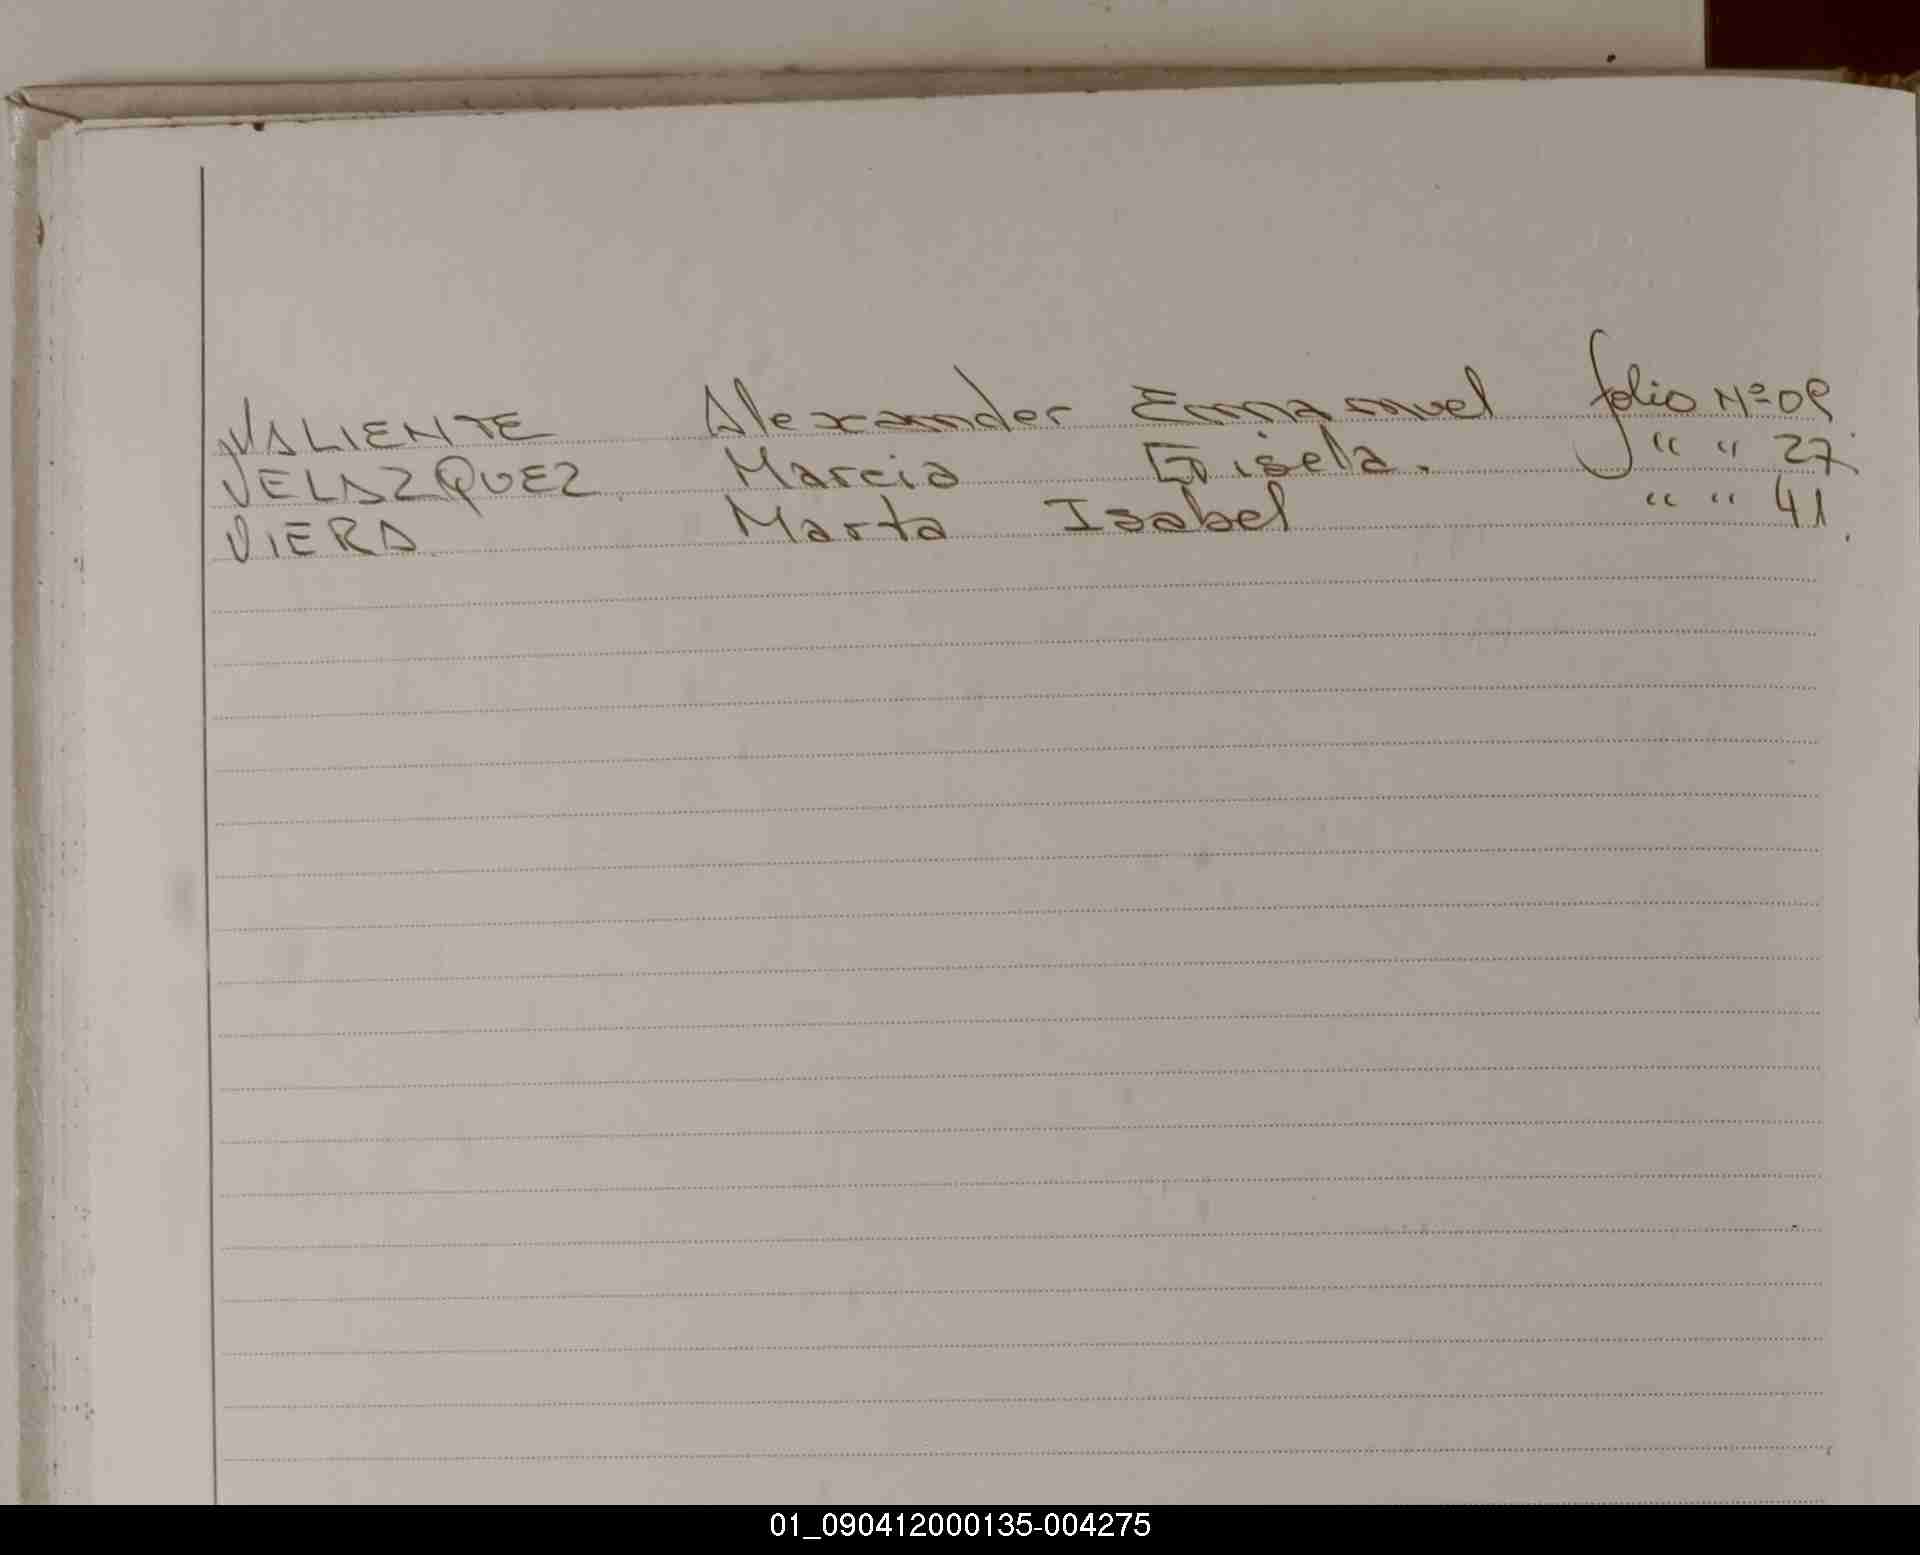 VALIENTE Alexander Emmanuel folio Nº 09
VELAZQUEZ Marcia Gisela. " " 27.
VIERA Marta Isabel " " 41.
01_090412000135-004275